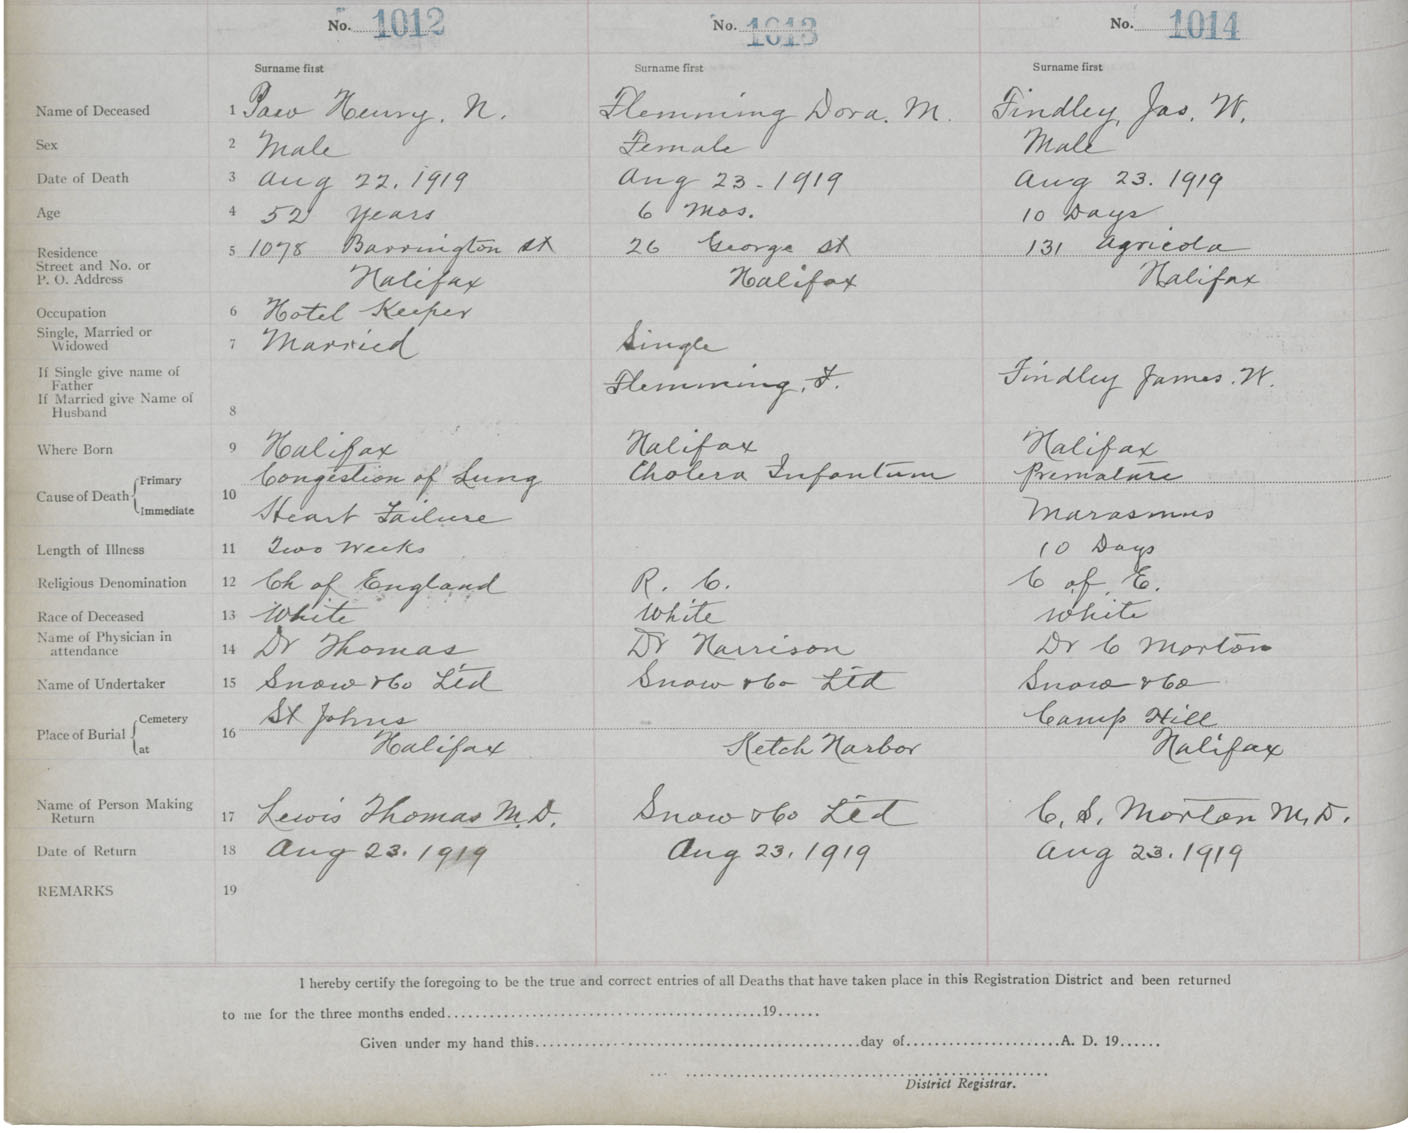 No. 1012 No. 1013 No. 1014
Surname first Surname first Surname first
Name of Deceased 1 Paw Henry, N. Flemming Dora. M. Findley, Jas. W.
Sex 2 Male Female Male
Date of Death 3 Aug 22, 1919 Aug 23 - 1919 Aug 23. 1919
Age 4 52 years 6 Mos. 10 Days
Residence 5 1078 Barrington St 26 George St 131 Agricola
Street and No. or
P. O. Address Halifax Halifax Halifax
Occupation 6 Hotel Keeper
Single, Married or
Widowed 7 Married Single
If Single give name of
Father Flemming, F. Findley James. W.
If Married give Name of
Husband 8
Where Born 9 Halifax Halifax Halifax
Cause of Death Primary 10 Congestion of Lung Cholera Infantum Premature
Immediate Heart Failure Marasmus
Length of Illness 11 Two Weeks 10 Days
Religious Denomination 12 Ch of England R. C. C of E.
Race of Deceased 13 White White White
Name of Physician in
attendance 14 Dr Thomas Dr Harrison Dr C Morton
Name of Undertaker 15 Snow & Co Ltd Snow & Co Ltd Snow & Co
Place of Burial Cemetery 16 St Johns Camp Hill
at Halifax Ketch Harbor Halifax
Name of Person Making
Return 17 Lewis Thomas M.D. Snow & Co Ltd C. S. Morton M.D.
Date of Return 18 Aug 23. 1919 Aug 23, 1919 Aug 23. 1919
REMARKS 19
I hereby certify the foregoing to be the true and correct entries of all Deaths that have taken place in this Registration District and been returned
to me for the three months ended..........................................19......
Given under my hand this..........................................day of.....................A. D. 19......
District Registrar.